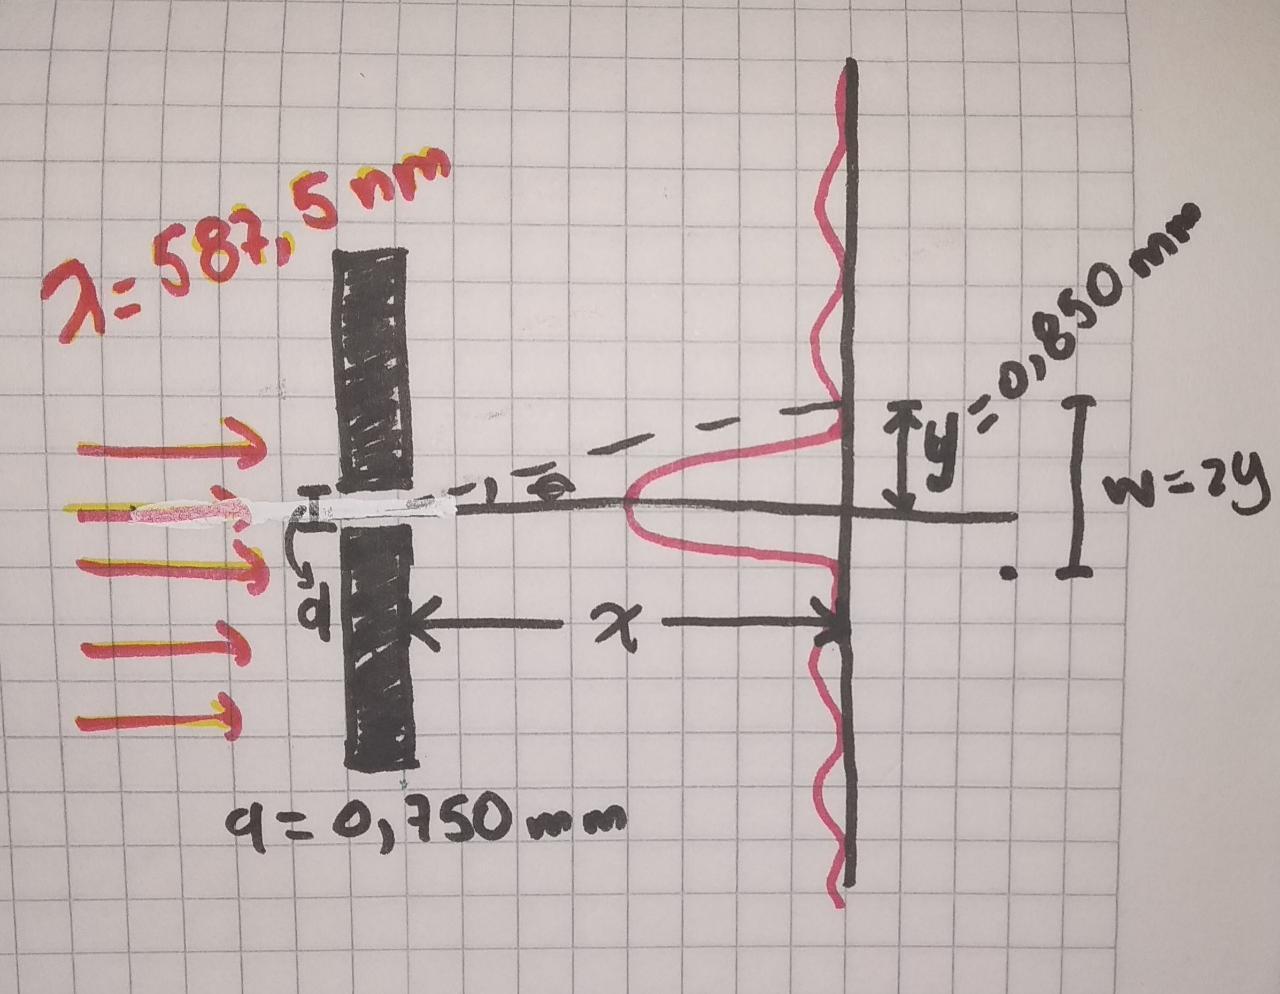 λ=587,5nm
θ
y=0,850mm
w=2y
a
x
a=0,750mm